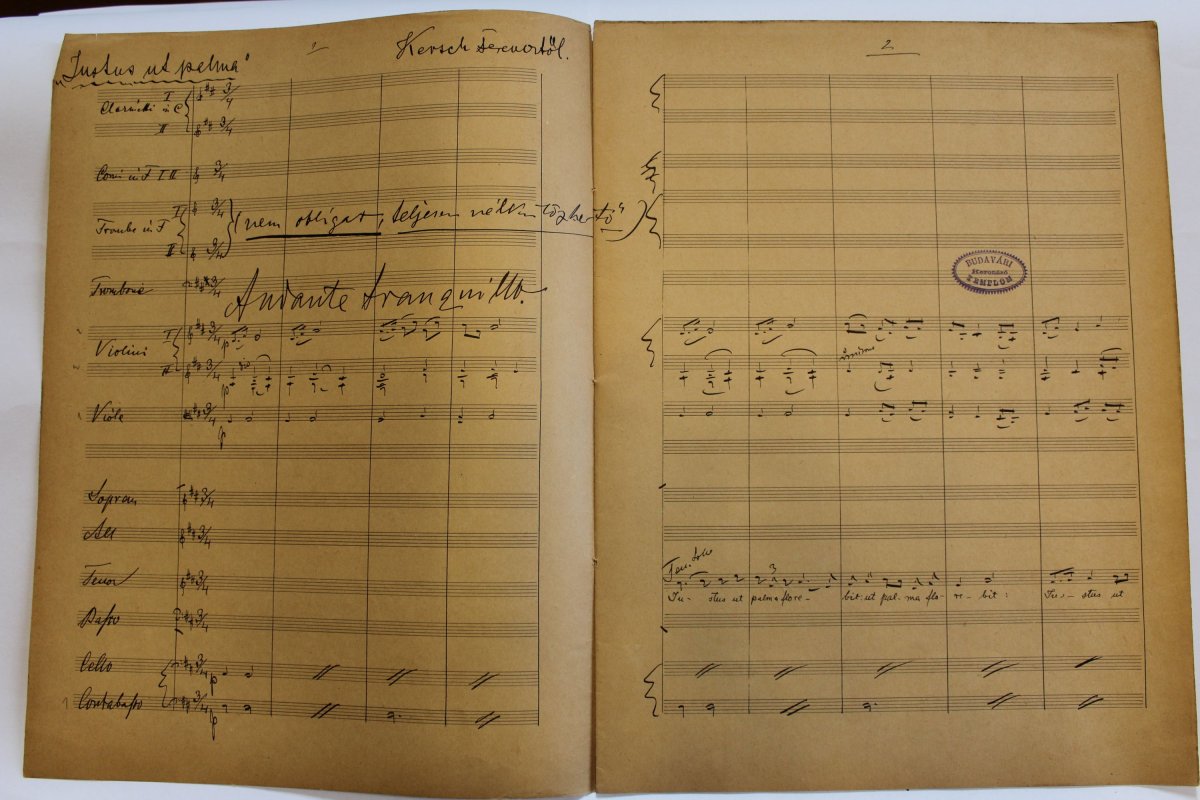 1
"Justus ut palma"
Kersch Ferenctől.
Clarinetti in C I
II
Corni in F I II
Trombe in F I
II
(nem obligat, teljesen
Trombone
Andante tranquillo.
Violini I
II
Viole
Sopran
Alt
Tenor
Basso
Cello
Contrabasso
3/4
p
2
BUDAVÁRI
Koronázó
TEMPLOM
unidue
Ten. Solo
3
Ju- stus ut palma flore- bit: ut pal- ma flo- re- bit: Ju- stus ut